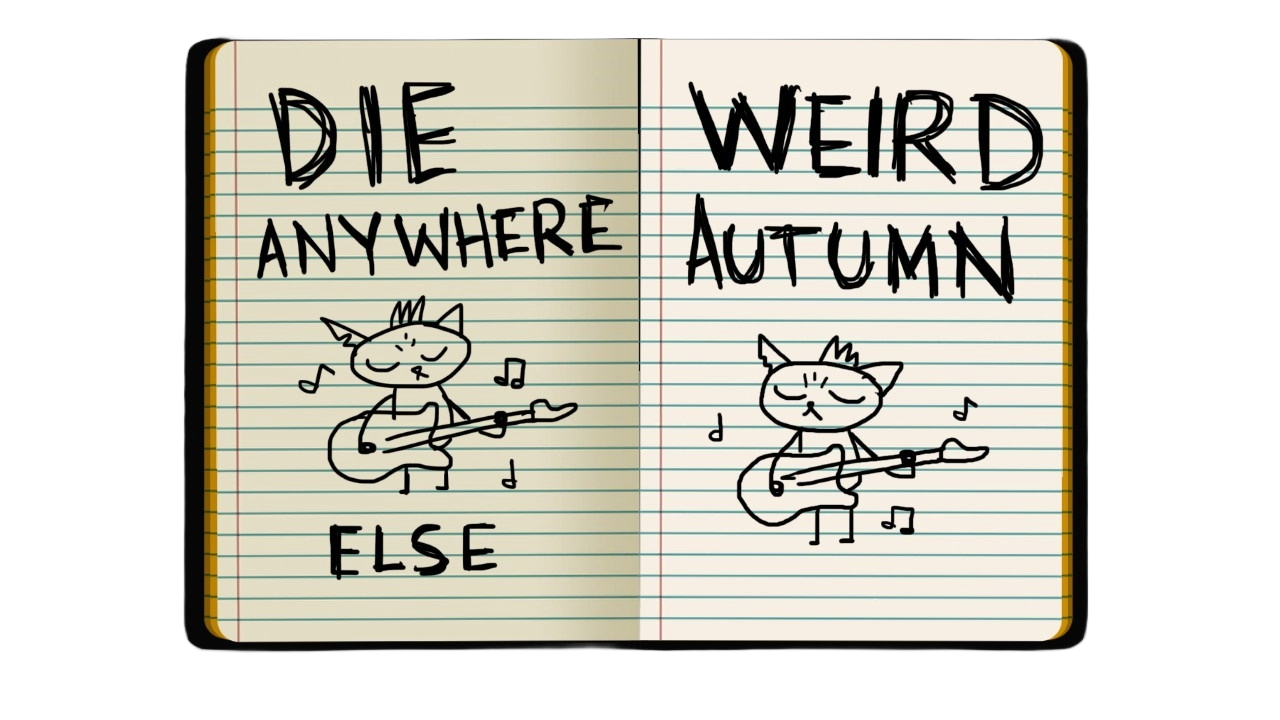 DIE
ANYWHERE
ELSE
WEIRD
AUTUMN